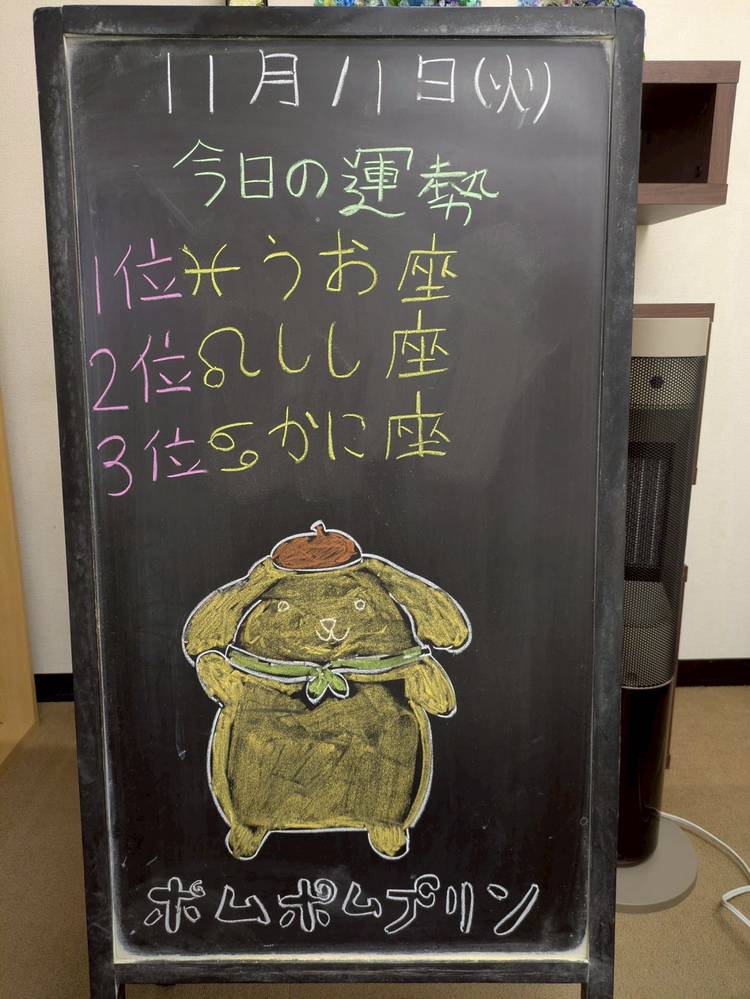 11月11日(火)
今日の運勢
1位♓うお座
2位♌しし座
3位♋かに座
ポムポムプリン